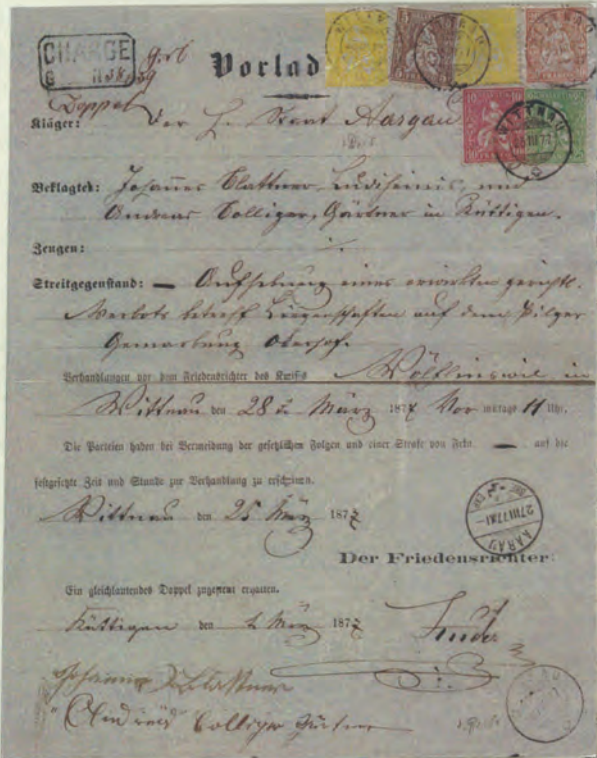 CHARGÉ
N 38/39
Vorlad
Doppel
Kläger: Der h. Staat Aargau
Beklagter: Johannes Blattner, und
Andreas Bolliger, Gärtner in Küttigen.
Zeugen: ·/·
Streitgegenstand: — Aufhebung eines erwirkten gerichtl.
Verbots betreff Liegenschaften auf dem Pilger
Gemarkung Oberhof.
Verhandlungen vor dem Friedensrichter des Kreises Wölflinswil in
Wittnau den 28 März 1877 Vor mittags 11 Uhr.
Die Parteien haben bei Vermeidung der gesetzlichen Folgen und einer Strafe von Frkn. — auf die
festgesetzte Zeit und Stunde zur Verhandlung zu erscheinen.
Wittnau den 25 März 1877
AARAU
27 III 77
Der Friedensrichter:
Ein gleichlautendes Doppel zugestellt erhalten.
Küttigen den März 1877
Johannes Blattner
Andreas Bolliger Gärtner